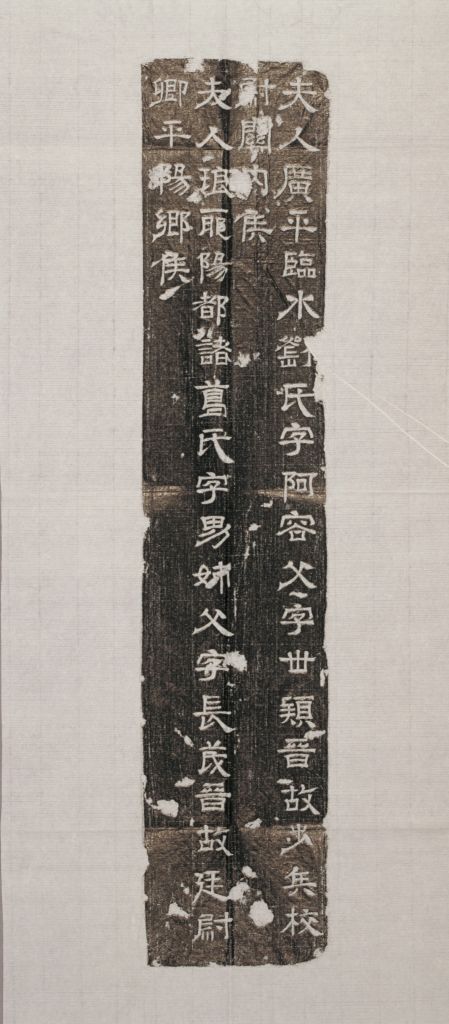 夫人廣平臨水劉氏字阿容父字世頴晉故步兵校
尉關內侯
夫人琅耶陽都諸葛氏字男姉父字長茂晉故廷尉
卿平陽鄉侯